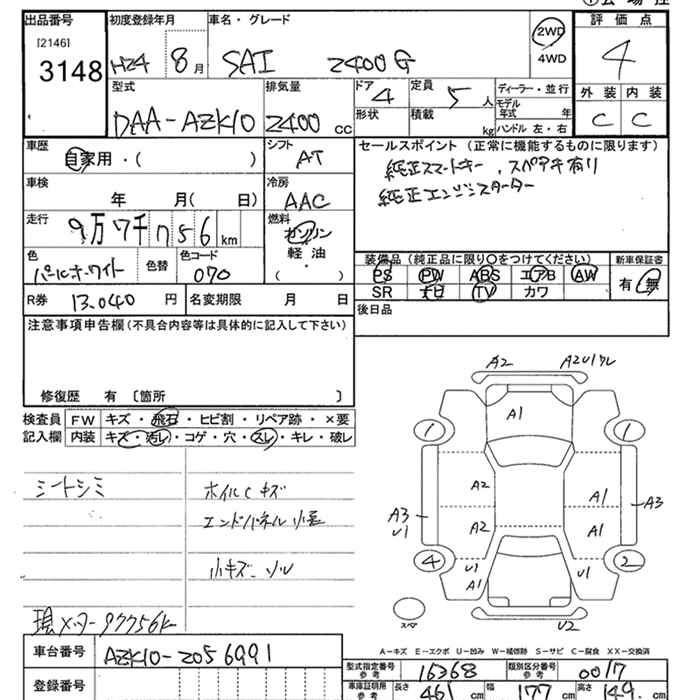 出品番号 初度登録年月 車名・グレード 評価点
[2146]
3148 H24 8月 SAI 2400G 2WD 4WD 4
外装 内装
C C
型式 排気量 ドア 定員 ディーラー・並行
DAA-AZK10 2400cc 4 5人 モデル年式 年
形状 積載 kg ハンドル 左・右
車歴 シフト セールスポイント(正常に機能するものに限ります)
自家用・( ) AT 純正スマートキー、スペアキ有り
車検 冷房 純正エンジンスターター
年 月( 日) AAC
走行 燃料
9万7千756km ガソリン
軽油
・( )
色 色替 色コード 装備品(純正品に限り○をつけてください) 新車保証書
パールホワイト 070 PS PW ABS エアB AW 有・無
SR ナビ TV カワ
R券 13.040円 名変期限 月 日 後日品
注意事項申告欄(不具合内容等は具体的に記入して下さい)
修復歴 有〔箇所 〕
検査員 FW キズ・飛石・ヒビ割・リペア跡・×要
記入欄 内装 キズ・汚レ・コゲ・穴・スレ・キレ・破レ
シートシミ ホイルCキズ
エンドパネル小
小キズ
現メーター97756K
A2 A2U1ワレ
A1
1 1
A2 A1
A3 U1 A3
A2 A1
4 U1 A1 U1 2
スペア U2
A-キズ E-エクボ U-凹み W-補修跡 S-サビ C-腐食 XX-交換済
車台番号 AZK10-2056991
登録番号
型式指定番号 参考 16368 類別区分番号 参考 0017
車庫証明用 参考 長さ 461cm 幅 177cm 高さ 149cm